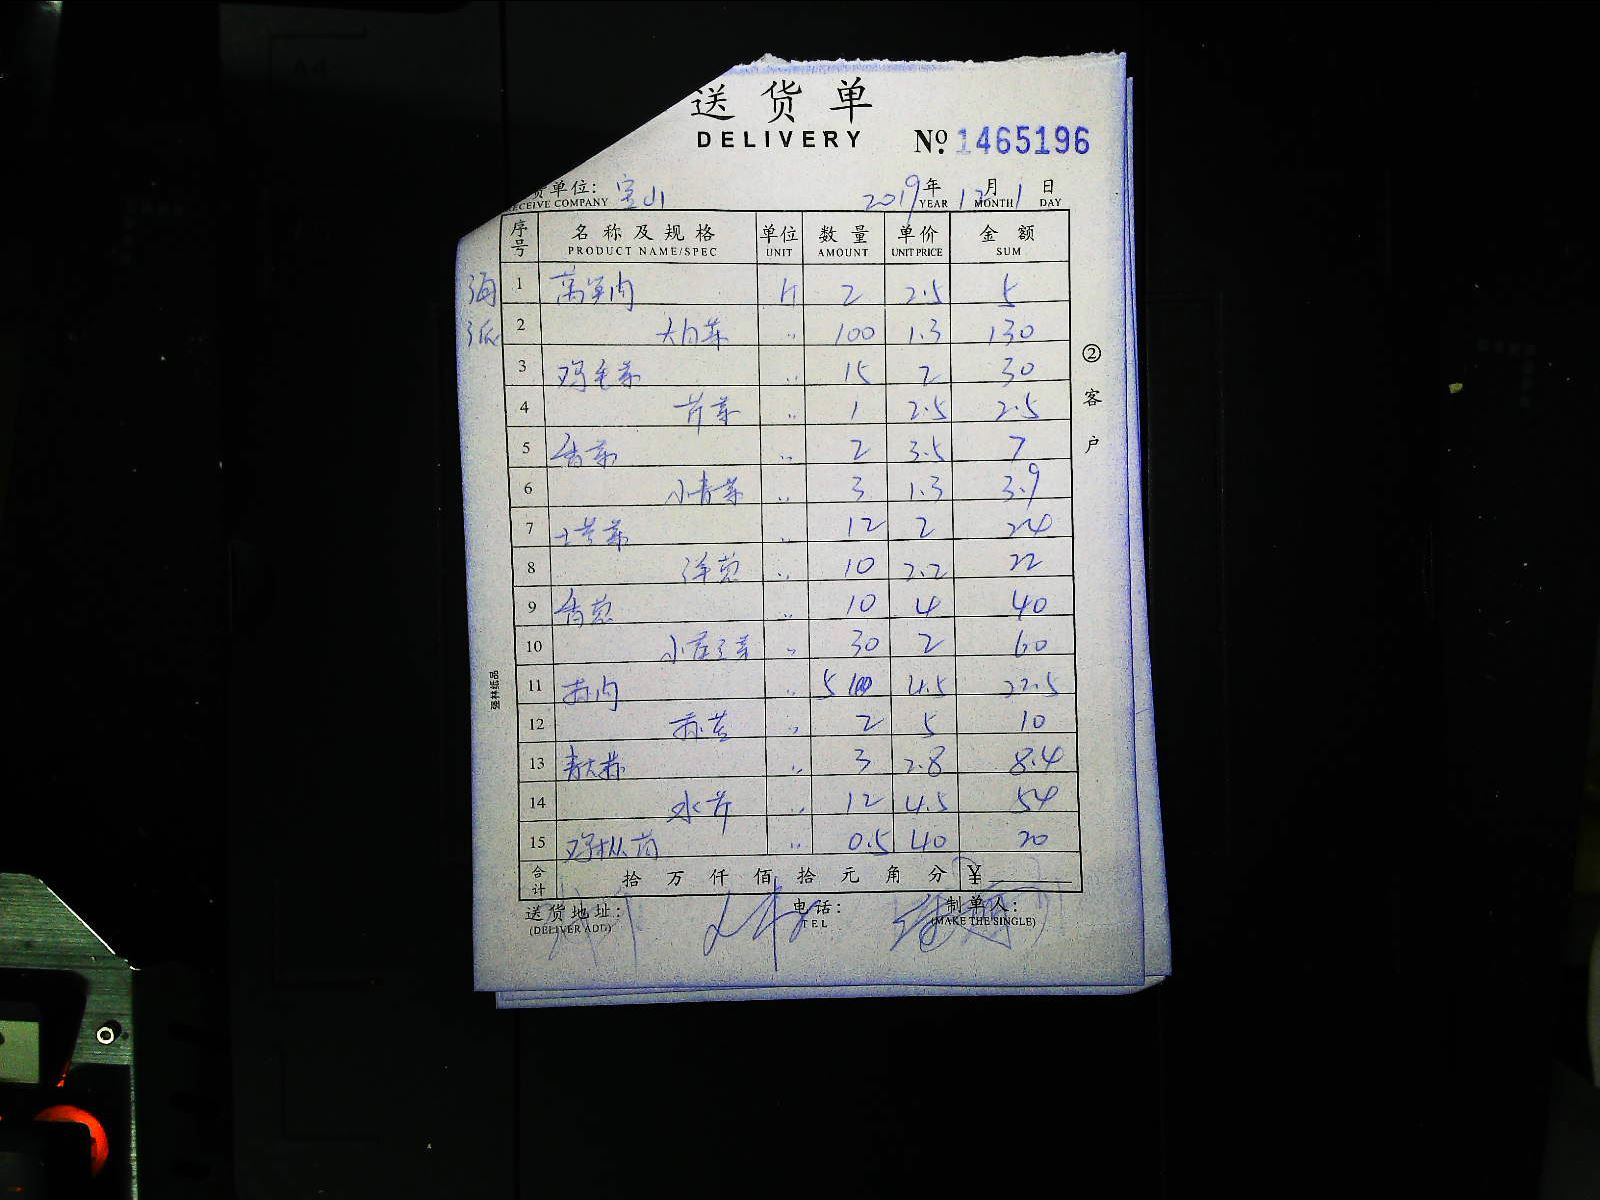 送货单
DELIVERY
№ 1465196
货单位: 宝山 2019年12月1日
RECEIVE COMPANY YEAR MONTH DAY
序号 名称及规格 单位 数量 单价 金额
PRODUCT NAME/SPEC UNIT AMOUNT UNIT PRICE SUM
1 2 2.5 5
2 大白菜 〃 100 1.3 130
3 鸡毛菜 〃 15 2 30
4 芹菜 〃 1 2.5 2.5
5 香菜 〃 2 3.5 7
6 小青菜 〃 3 1.3 3.9
7 〃 12 2 24
8 洋葱 〃 10 2.2 22
9 香葱 〃 10 4 40
10 〃 30 2 60
11 〃 5 4.5 22.5
12 〃 2 5 10
13 青大蒜 〃 3 2.8 8.4
14 水芹 〃 12 4.5 54
15 鸡枞菌 〃 0.5 40 20
合计 拾 万 仟 佰 拾 元 角 分 ¥
送货地址: 电话: 制单人:
(DELIVER ADD) TEL (MAKE THE SINGLE)
②客户
强林纸品